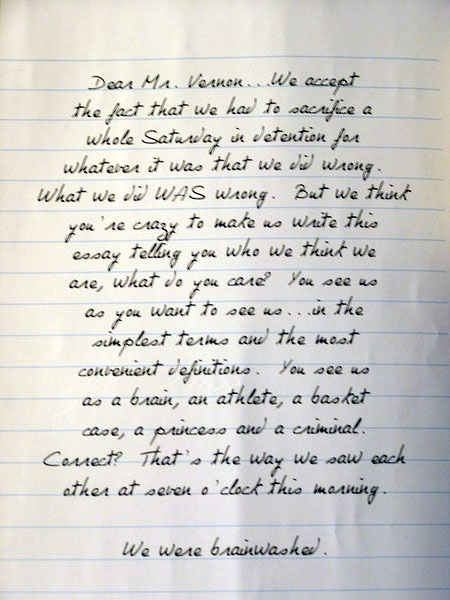 Dear Mr. Vernon...We accept
the fact that we had to sacrifice a
whole Saturday in detention for
whatever it was that we did wrong.
What we did WAS wrong. But we think
you're crazy to make us write this
essay telling you who we think we
are, what do you care? You see us
as you want to see us...in the
simplest terms and the most
convenient definitions. You see us
as a brain, an athlete, a basket
case, a princess and a criminal.
Correct? That's the way we saw each
other at seven o'clock this morning.
We were brainwashed.